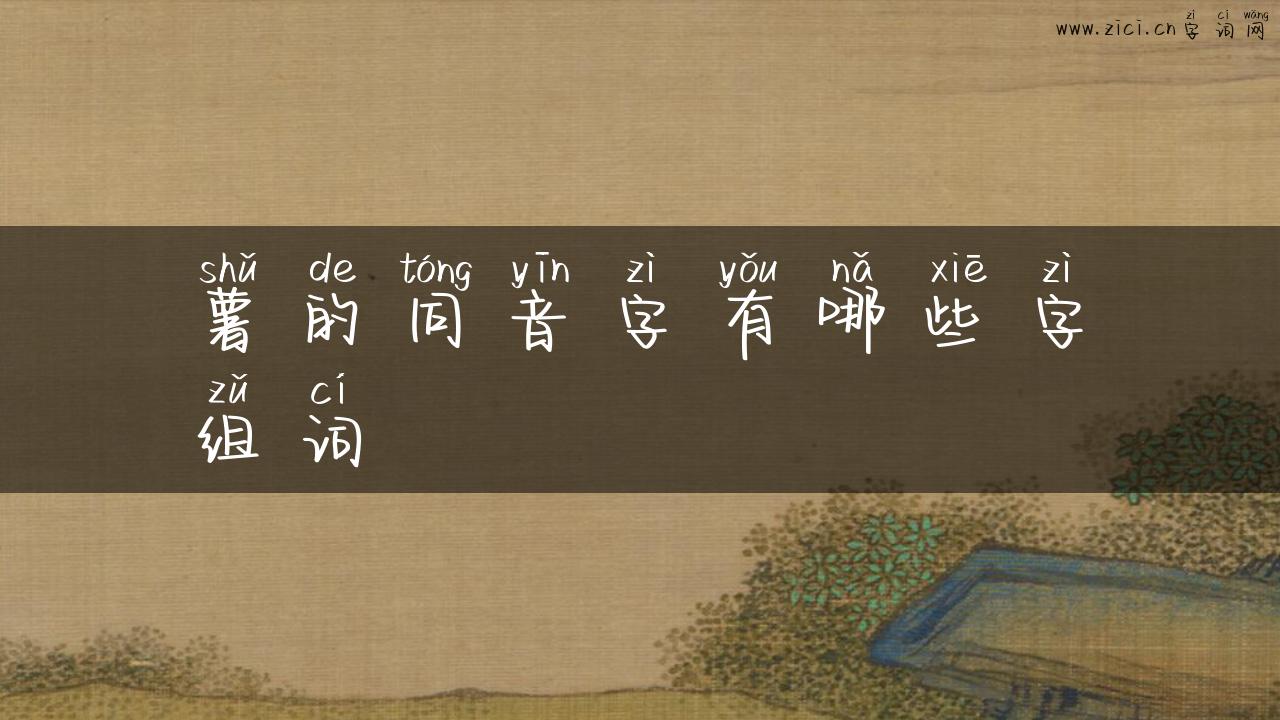 zì cí wǎng
www.zici.cn 字词网
shǔ de tóng yīn zì yǒu nǎ xiē zì
薯的同音字有哪些字
zǔ cí
组词